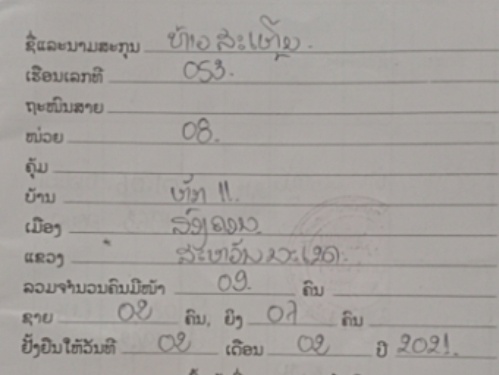 ຊື່ແລະນາມສະກຸນ ທ້າວ
ເຮືອນເລກທີ 053.
ຖະໜົນສາຍ
ໜ່ວຍ 08.
ຄຸ້ມ
ບ້ານ 11.
ເມືອງ ສອງຄອນ
ແຂວງ ສະຫວັນນະເຂດ
ລວມຈຳນວນຄົນມີໜ້າ 09. ຄົນ
ຊາຍ 02 ຄົນ, ຍິງ 07 ຄົນ
ຢັ້ງຢືນໃຫ້ວັນທີ 02 ເດືອນ 02 ປີ 2021.